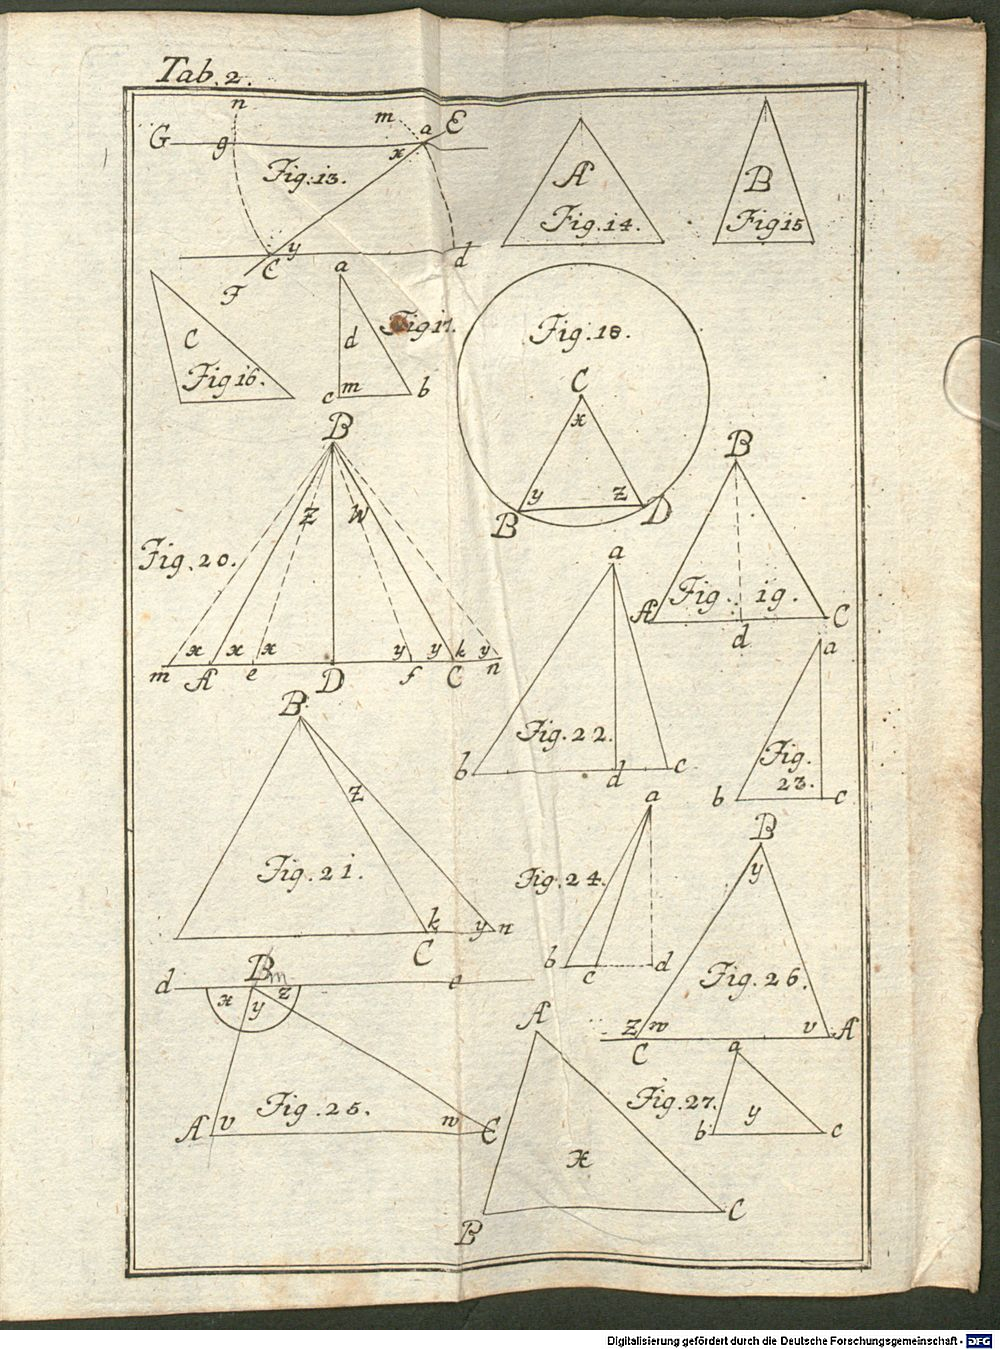 Tab. 2.
n
m
a E
G
g
x
Fig: 13.
C y
d
F
A
Fig. 14.
B
Fig 15
C
Fig 16.
a
Fig 17.
d
c m
b
Fig: 18.
C
x
y z
B D
B
Z W
Fig. 20.
x x x y y k y
m A e D f C n
B
Fig. 19.
A d C
a
Fig. 22.
b d c
a
Fig.
23.
b c
B
Z
Fig. 21.
k
C
y n
a
Fig. 24.
b c d
B
y
Fig. 26.
z w v A
C
d B m e
x y z
Fig. 25.
A v w C
A
x
B C
a
Fig. 27.
y
b c
Digitalisierung gefördert durch die Deutsche Forschungsgemeinschaft - DFG